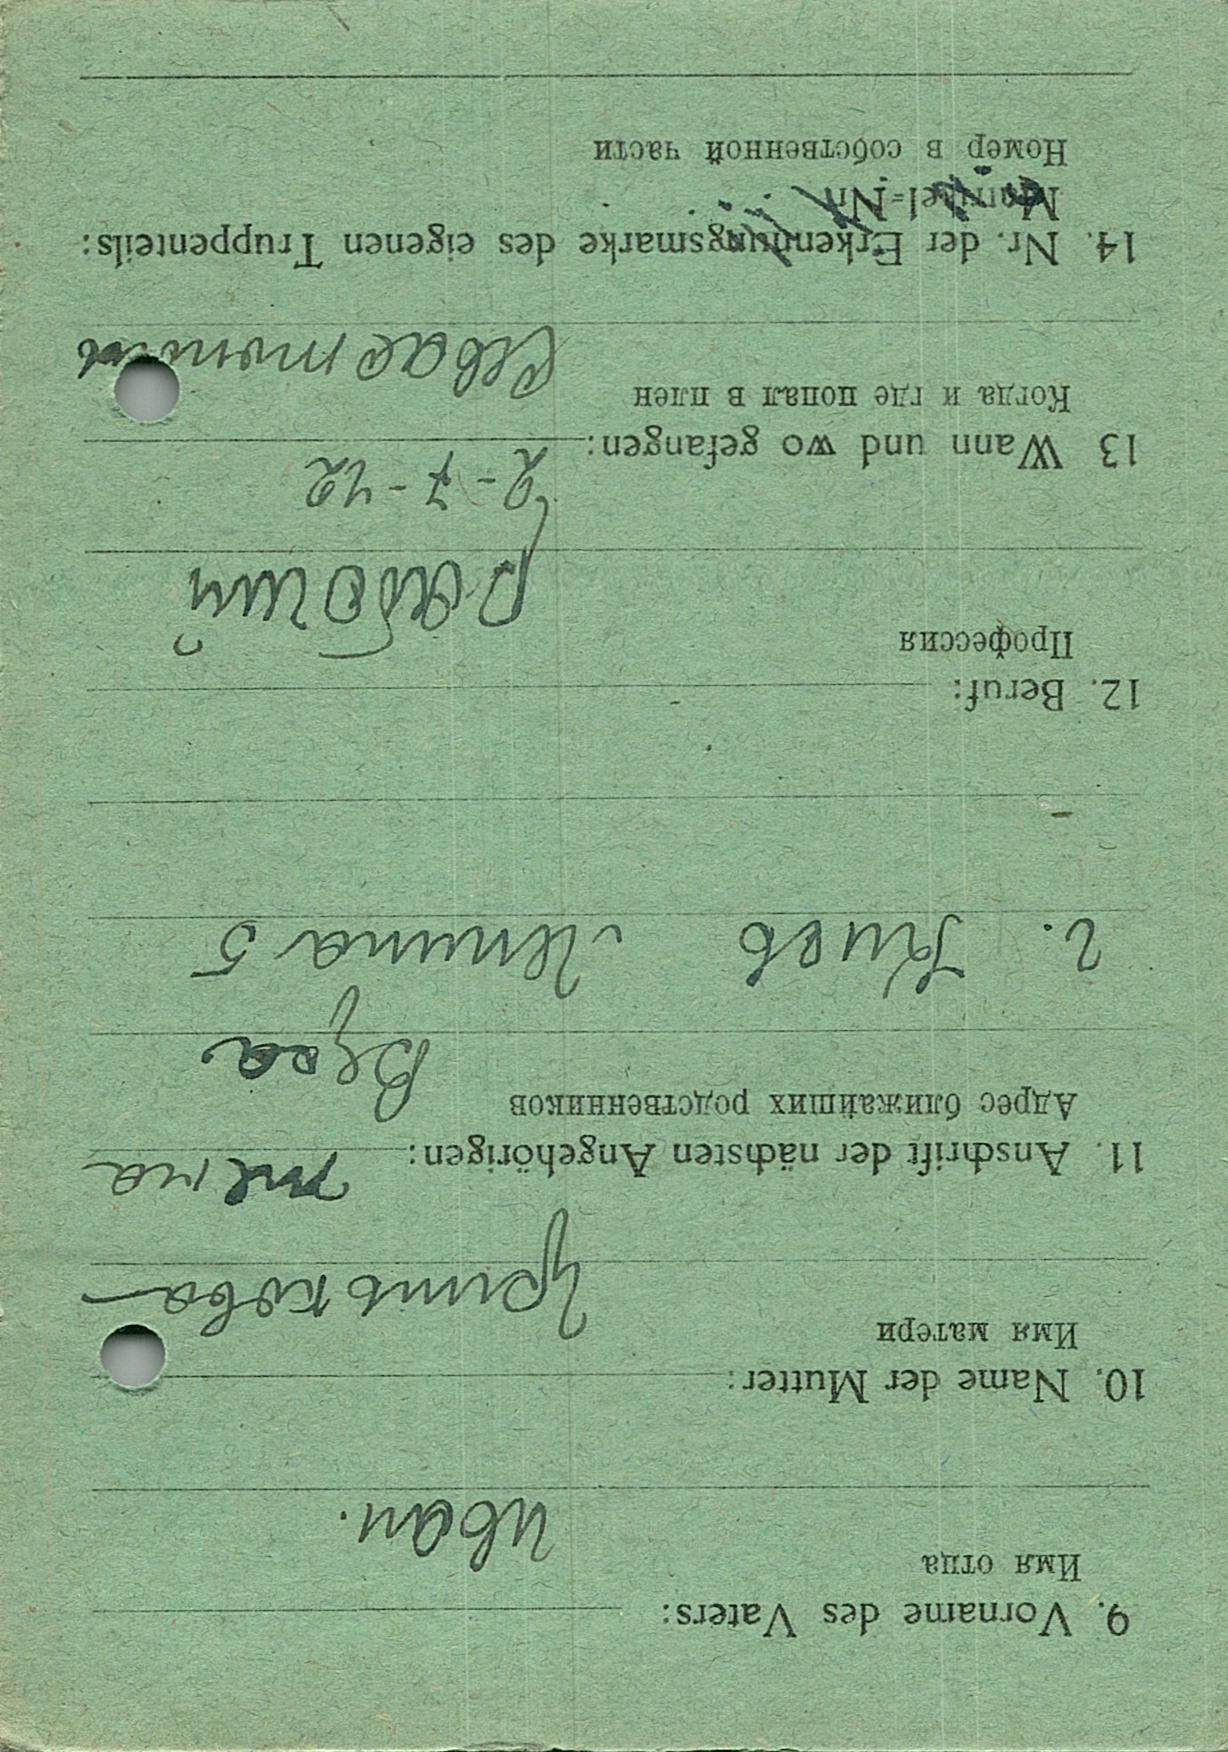 9. Vorname des Vaters:
Имя отца
Иван.
10. Name der Mutter:
Имя матери
Гринькова
11. Anschrift der nächsten Angehörigen: жена
Адрес ближайших родственников
Вера
г. Киев Ленина 5
12. Beruf:
Профессия
рабочий
2-7-42
13 Wann und wo gefangen:
Когда и где попал в плен
Севастополь
14. Nr. der Erkennungsmarke des eigenen Truppenteils:
Номер в собственной части